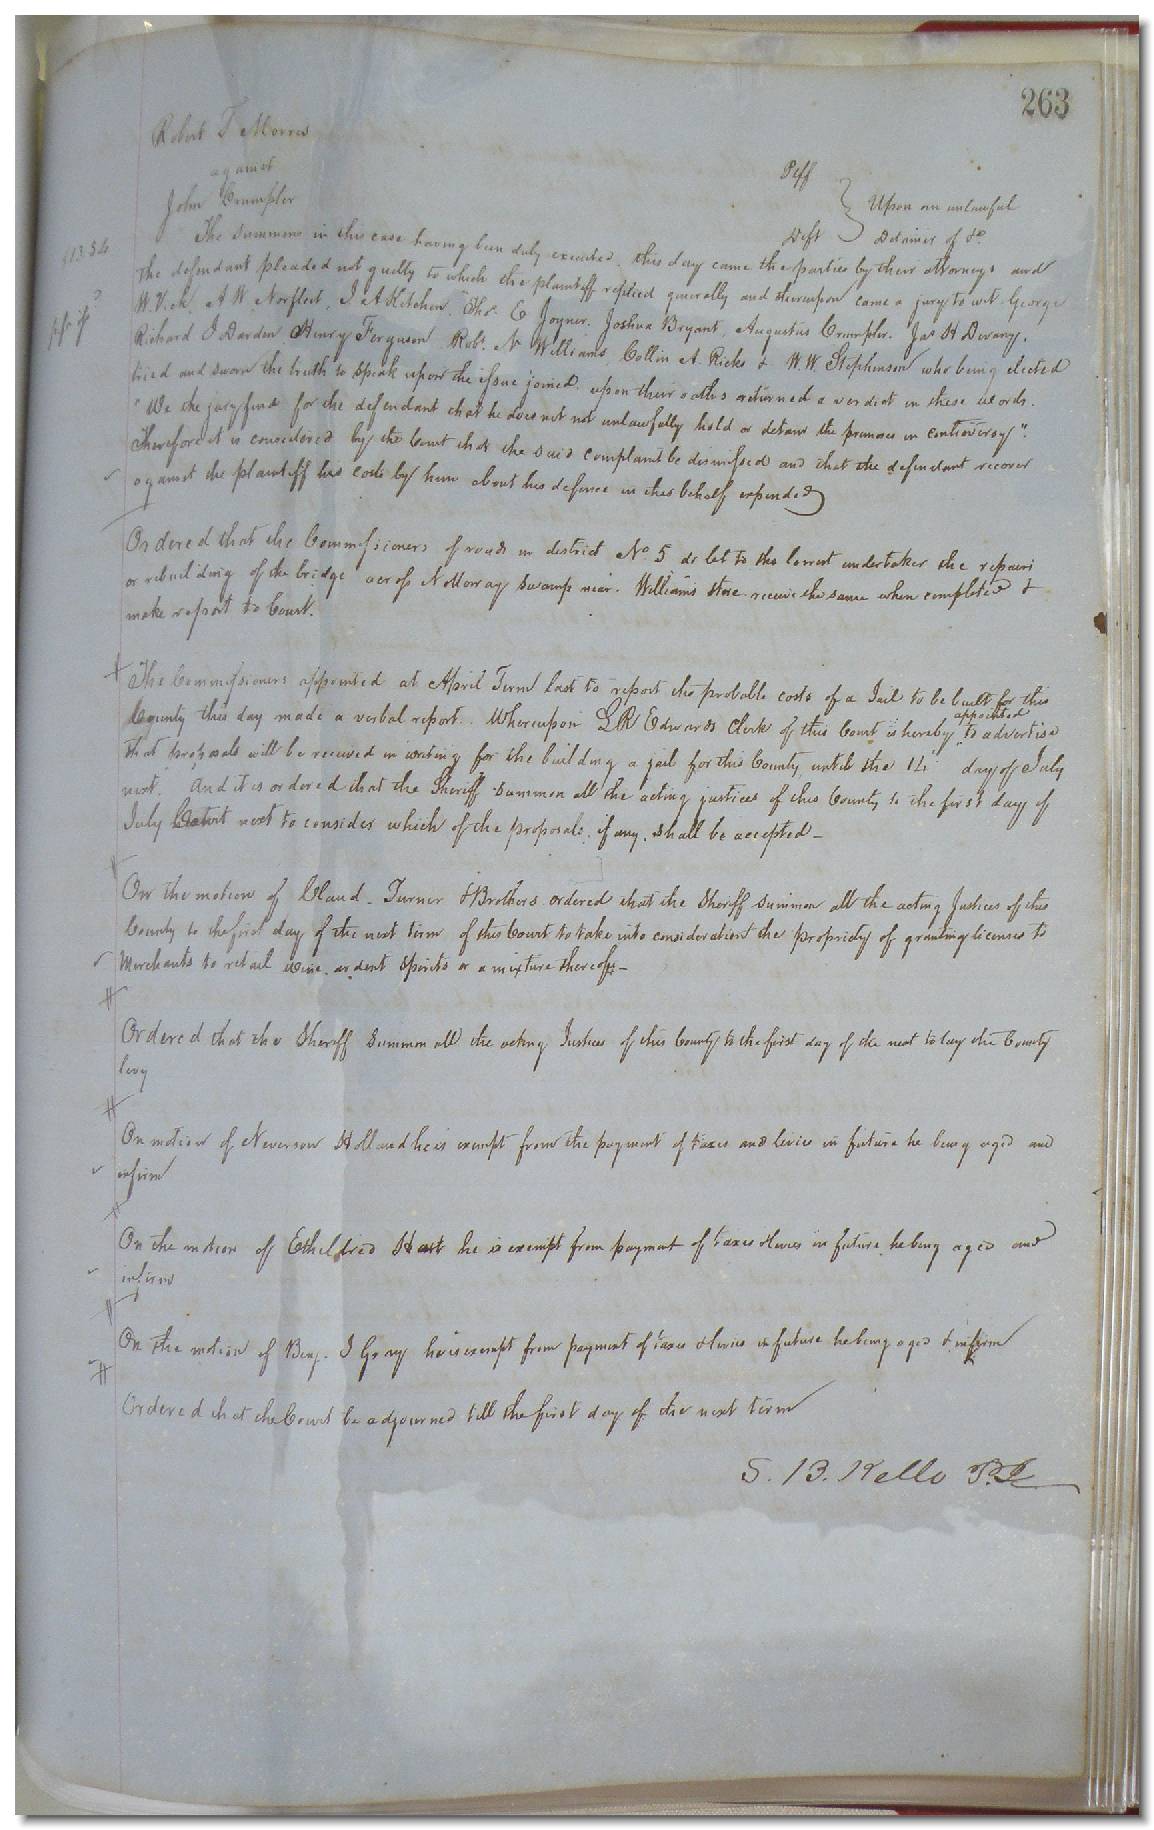 263
Robert T Morris Plff
against
John Crumpler Deft
Upon an unlawful
Detainer of &c
The summons in this case having been duly executed. this day came the parties by their attorneys and
the defendant pleaded not guilty to which the plaintiff replied generally and thereupon came a jury to wit George
W. Vick, A W Norfleet, J. A Kitchen, Thos E Joyner, Joshua Bryant, Augustus Crumpler. Jas H Devany.
Richard J Darden Henry Ferguson Robt N Williams Collin A. Ricks & W. W. Stephenson who being elected
tried and sworn the truth to speak upon the issue joined. upon their oaths returned a verdict in these words.
"We the jury find for the defendant that he does not not unlawfully hold or detain the premises in controversy".
Therefore it is considered by the Court that the said complaint be dismissed and that the defendant recover
against the plaintiff his costs by him about his defence in this behalf expended
Ordered that the Commissioners of roads in district No 5 do let to the lowest undertaker the repairs
or rebuilding of the bridge across Nottoway swamp near Williams Store receive the same when completed &
make report to Court.
The Commissioners appointed at April Term last to report the probable costs of a Jail to be built for this
County this day made a verbal report. Whereupon L R Edwards Clerk of this Court is hereby appointed to advertise
that proposals will be received in writing for the building a jail for this County until the 14 day of July
next. And it is ordered that the Sheriff summon all the acting justices of this County to the first day of
July Court next to consider which of the proposals, if any, shall be accepted -
On the motion of Claud. Turner & Brothers ordered that the Sheriff summon all the acting Justices of this
County to the first day of the next term of this Court to take into consideration the propriety of granting licenses to
Merchants to retail wine, ardent spirits or a mixture thereof -
Ordered that the Sheriff summon all the acting Justices of this County to the first day of the next to lay the County
levy
On motion of Neverson Holland he is exempt from the payment of taxes and levies in future he being aged and
infirm
On the motion of Etheldred Hart he is exempt from payment of taxes & levies in future he being aged and
infirm
On the motion of Benj. J Gray he is exempt from payment of taxes & levies in future he being aged & infirm
Ordered that the Court be adjourned till the first day of the next term
S. B. Kello P. J.